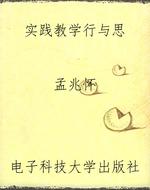 实践教学行与思
孟兆怀
电子科技大学出版社